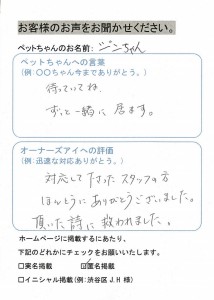 お客様のお声をお聞かせください。
ペットちゃんのお名前: ジンちゃん
ペットちゃんへの言葉
(例:〇〇ちゃん今までありがとう。)
待っていてね
ずっと一緒に居ます。
オーナーズアイへの評価
(例:迅速な対応ありがとう。)
対応して下さったスタッフの方
ほんとうにありがとうございました。
頂いた詩に救われました。
ホームページに掲載するにあたり、
下記のどれかにチェックをお願いいたします。
□実名掲載 ☑匿名掲載
□イニシャル掲載(例:渋谷区 J.H 様)